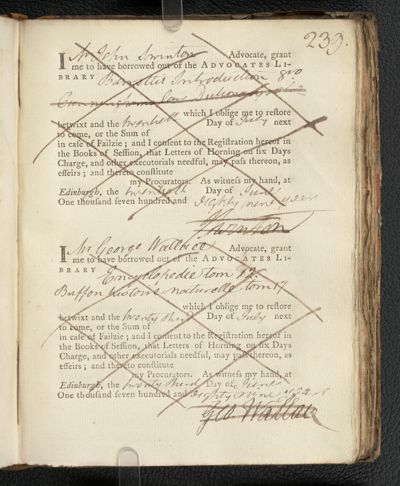 239.
I Mr John Swinton Advocate, grant
me to have borrowed out of the ADVOCATES LI-
BRARY Barrister's Introduction 8vo
Dictionary
which I oblige me to restore
betwixt and the twentieth Day of July next
to come, or the Sum of
in case of Failzie; and I consent to the Registration hereof in
the Books of Session, that Letters of Horning on six Days
Charge, and other executorials needful, may pass thereon, as
effeirs; and thereto constitute
my Procurators. As witness my hand, at
Edinburgh, the twentieth Day of June
One thousand seven hundred and Eighty nine years
J Swinton
I Mr George Wallace Advocate, grant
me to have borrowed out of the ADVOCATES LI-
BRARY Encyclopedie tom 12.
Buffon histoire naturelle tom 17
which I oblige me to restore
betwixt and the twenty third Day of July next
to come, or the Sum of
in case of Failzie; and I consent to the Registration hereof in
the Books of Session, that Letters of Horning on six Days
Charge, and other executorials needful, may pass thereon, as
effeirs; and thereto constitute
my Procurators. As witness my hand, at
Edinburgh, the twenty third Day of June
One thousand seven hundred and Eighty nine years
Geo Wallace